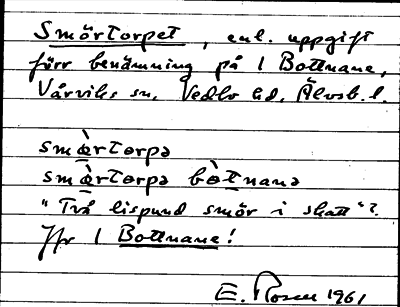 Smörtorpet, enl. uppgift
förr benämning på 1 Bottnane,
Vårviks sn, Vedbo hd, Älvsb. l.
smæ̀rtorpə
smæ̀rtorpə bòtnanə
"Två lispund smör i skatt"?
Jfr 1 Bottnane!
E. Rosen 1961